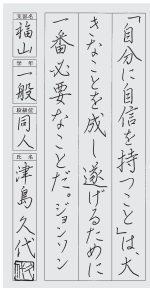 「自分に自信を持つこと」は、大
きなことを成し遂げるために
一番必要なことだ。ジョンソン
支部名
福山
学年
一般
段級位
同人
氏名
津島久代